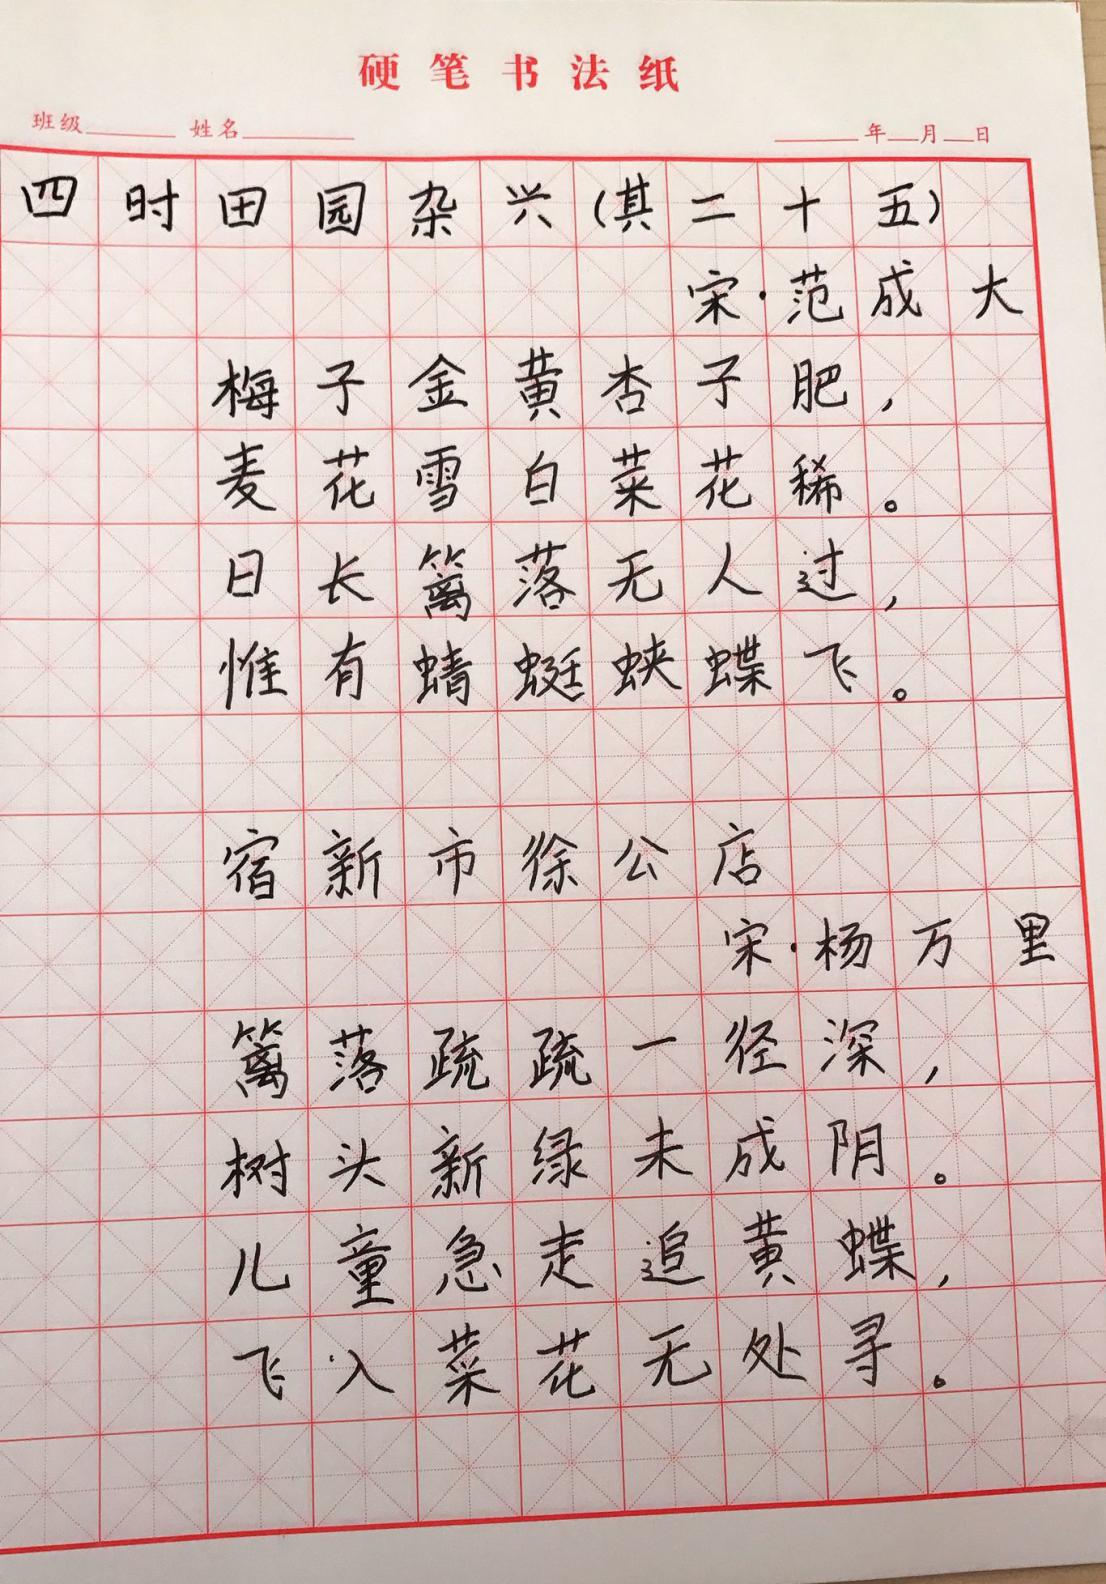 硬笔书法纸
班级 姓名 年 月 日
四时田园杂兴(其二十五)
宋·范成大
梅子金黄杏子肥，
麦花雪白菜花稀。
日长篱落无人过，
惟有蜻蜓蛱蝶飞。
宿新市徐公店
宋·杨万里
篱落疏疏一径深，
树头新绿未成阴。
儿童急走追黄蝶，
飞入菜花无处寻。